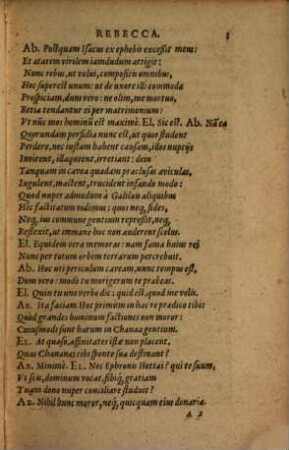 REBECCA. 5
Ab. Postquam Isacus ex ephebo excessit meus:
Et ætatem virilem iamdudum attigit:
Nunc rebus, ut volui, compositis omnibus,
Hoc superest unum: ut de uxore illi commoda
Prospiciam, dum vero: ne olim, me mortuo,
Retia tendantur ei per matrimonium:
Vt nũc mos hominũ est maximè. El. Sic est. Ab. Nã ea
Quorundam perfidia nunc est, ut quos student
Perdere, nec iustam habent causam, illos nuptijs
Invitent, illaqueent, irretiant: dein
Tanquam in cavea quadam præclusas aviculas,
Iugulent, mactent, trucident infando modo:
Quod nuper admodum à Galileis aliquibus
Hic factitatum vidimus: quos neq, fides,
Neq, ius commune gentium repressit, neq,
Reflexit, ut immane hoc non auderent scelus.
El. Equidem vera memoras: nam fama huius rei
Nunc per totum orbem terrarum percrebuit.
Ab. Hoc uti periculum caveam, nunc tempus est,
Dum vero: modò tu morigerum te præbeas.
El. Quin tu uno verbo dic: quid est, quod me velis.
Ab. Ita faciam. Hoc primùm in hac re prædico tibi
Quod grandes hominum factiones non moror:
Cuiusmodi sunt harum in Chanaa gentium.
El. At quæso, affinitates istæ non placent,
Quas Chananæi tibi sponte sua destinant?
Ab. Minimè. El. Nec Ephronis Hettæi? qui te suum,
Vt scis, dominum vocat, sibiq́, gratiam
Tuam dono nuper conciliare studuit?
Ab. Nihil hunc moror, neq́, quicquam eius donaria.
A 3